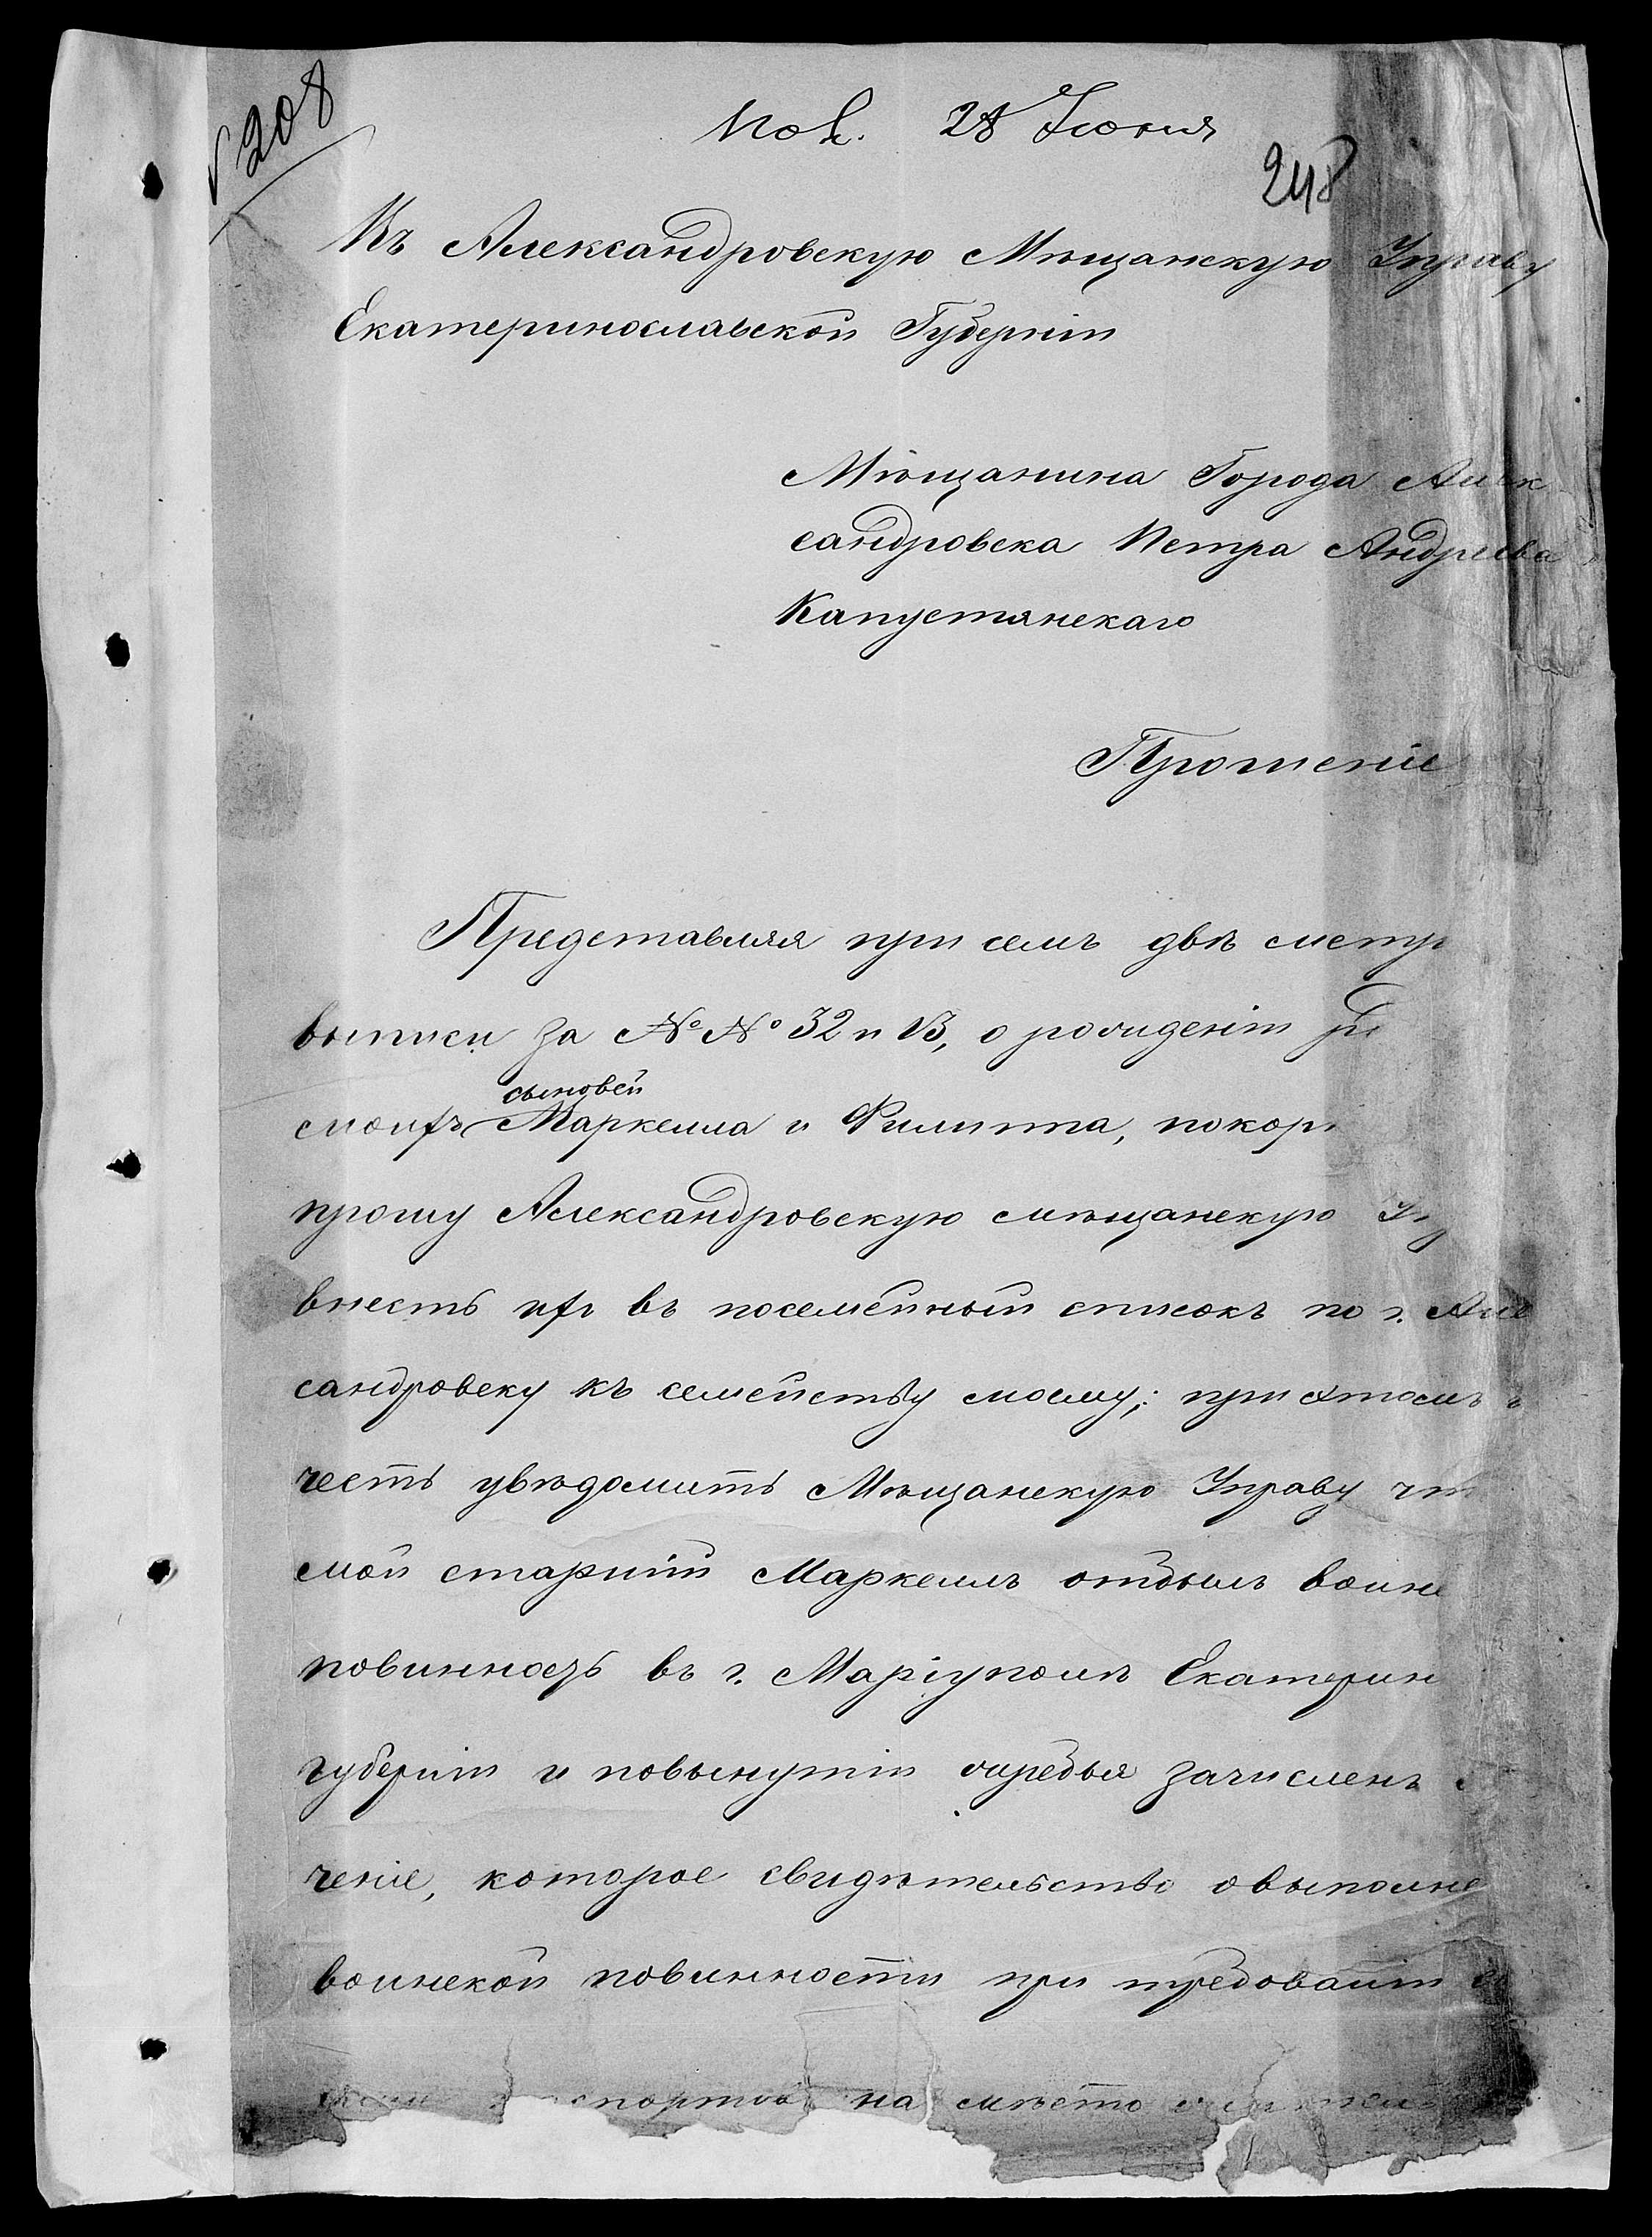 208
Пол. 28 Іюня
248
Въ Александровскую Мѣщанскую Управу
Екатеринославской Губерніи
Мѣщанина Города Алек
сандровска Петра Андреева
Капустянскаго
Прошеніе
Представляя при семъ двѣ метр
выписи за №№ 32 и 13, о рожденіи
сыновей
моихъ Маркелла и Филиппа, покор
прошу Александровскую мѣщанскую Уп
внесть ихъ въ посемейный списокъ по г. Алек
сандровску къ семейству моему; при этомъ
честь увѣдомить Мѣщанскую Управу чт
мой старшій Маркеллъ отбылъ воинс
повинность въ г. Маріуполѣ Екатерин
губерніи и повынутіи жребья зачисленъ
ченіе, которое свидѣтельство овыполне
воинской повинности при требованіи
на мѣсто